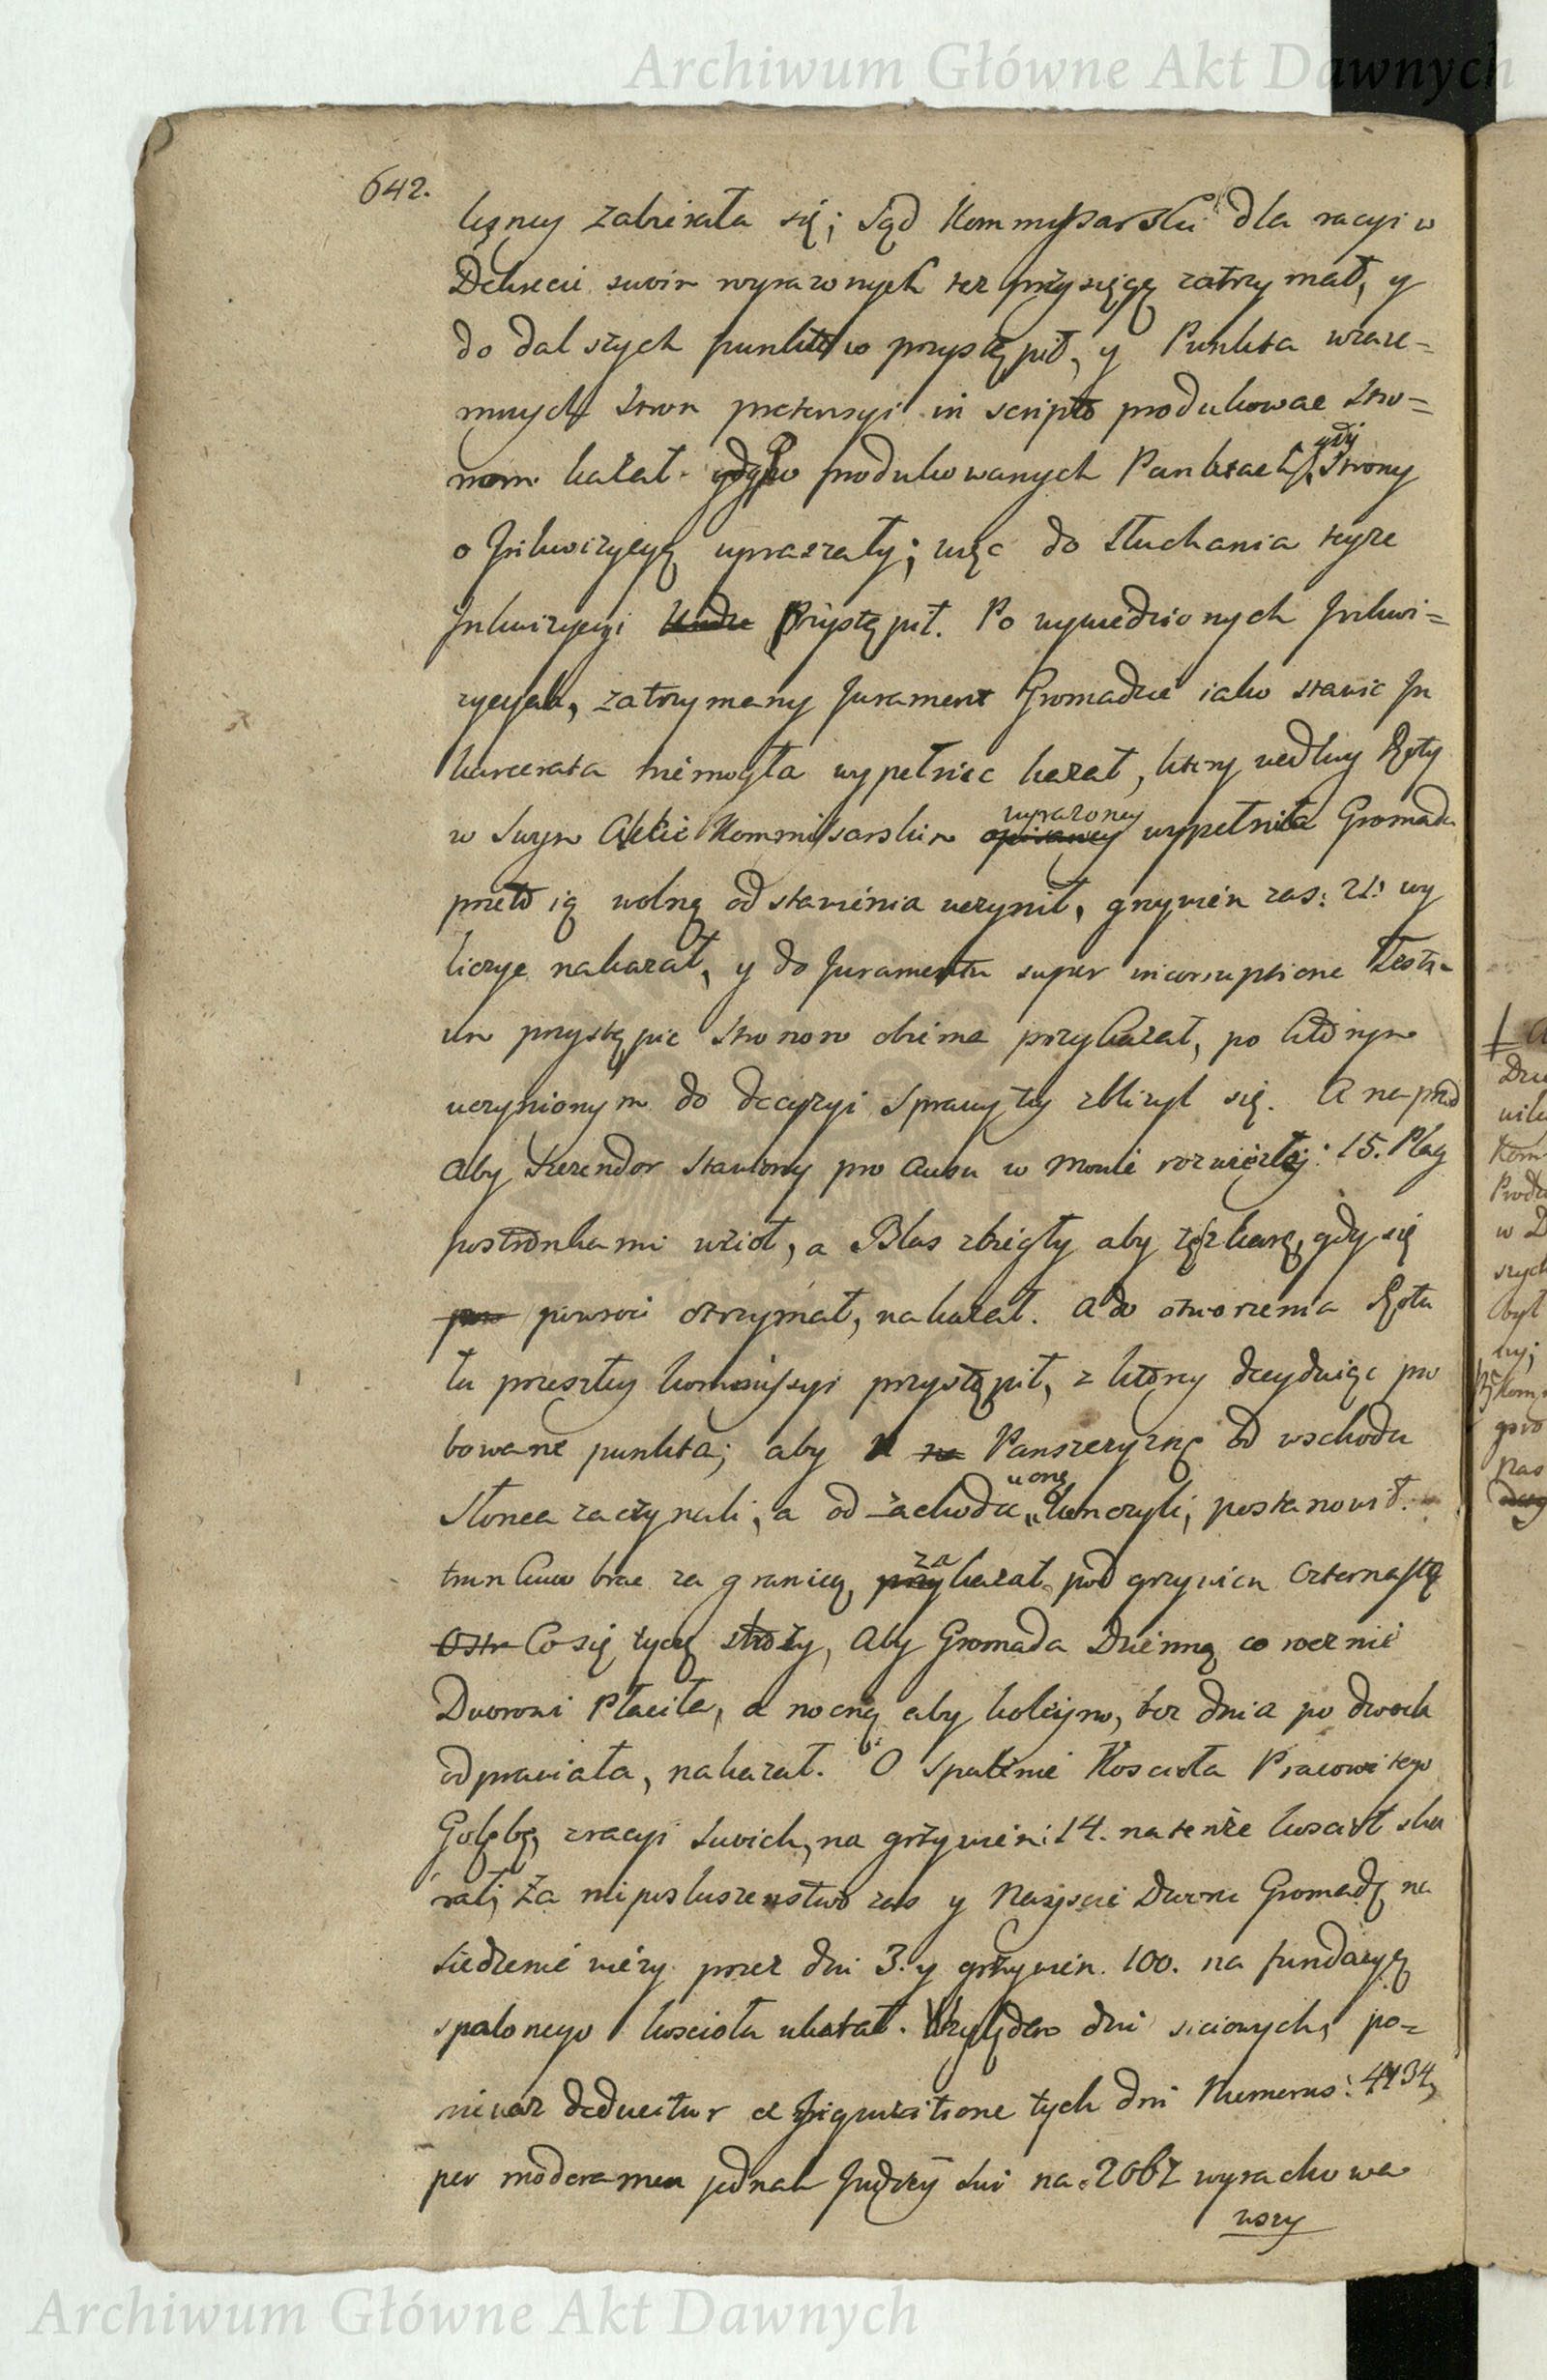 Archiwum Główne Akt Dawnych
642.
zabierała się; Sąd Kommyssarski dla racyi w
Dekrecie swoim wyrazonych tez przysięgę zatrzymał, y
do dalszych punktow przystąpił, y Punkta wzaie=
mnych Stron pretensyi in scripto produkowac Stro=
nom kazał. produkowanych Punktach gdy Strony
o Inkwizycyę upraszały; więc do słuchania teyże
Inkwizycyi przystąpił. Po wywiedzionych Inkwi=
zycyiach, zatrzymany Jurament Gromadzie iako stawic In
karcerata niemogła wypełnic kazał, ktory według Roty
w Swym Akcie Kommissarskim wyrazoney wypełniła Gromada
przeto ią wolną od stawienia uczynił, grzywien zas: 21: wy
liczyc nakazał, y do Juramentu super incorruptione Testi-
um przystąpic Stronom obiema przykazał, po ktorym
uczynionym do decyzyi Sprawy tey zblizył się. A naprzod
aby Stawiony pro ausu w mowie rozwięzłey: 15. Plag
postronkami wzioł, a Blas zbiegły aby tęz karę, gdy się
powroci otrzymał, nakazał. A do otworzenia
tu przeszłey kommissyi przystąpił, z ktorey decyduiąc pro
bowane punkta; aby Panszczyznę od wschodu
Słonca zaczynali, a od zachodu onę konczyli, postanowił.
trunkow brac za granicą, zakazał pod grzywien czternastą
Co się tycze stroży, aby Gromada Dzienną co rocznie
Dworowi Płaciła, a nocną aby koleyno, bez dnia po dwoch
odprawiała, nakazał. O spalenie Koscioła Pracowitego
Gołębę, z racyi swoich, na grzywien: 14. na tenże koscioł ska
zał; Za nieposłuszenstwo zas y Naiyscie Dworu Gromadę na
siedzenie wiezy przez dni 3. y grzywien. 100. na fundacyę
spalonego koscioła ukarał. Względem dni po=
niewaz deducitur ex Inquisitione tych dni Numerus: 4134,
per moderamen jednak Judicij dni na: 2067 wyrachowa
wszy
Archiwum Główne Akt Dawnych